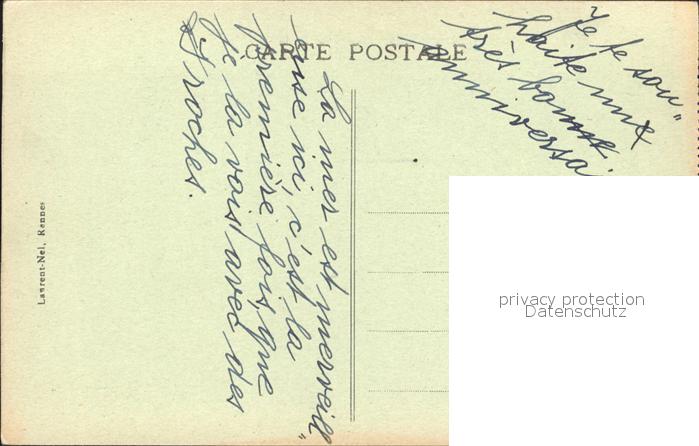 CARTE POSTALE
La mer est merveill„
euse ici, c'est la
première fois que
je la vois avec des
roches.
Je te sou„
haite une
très bonne
anniversai
Laurent-Nel, Rennes
privacy protection
Datenschutz